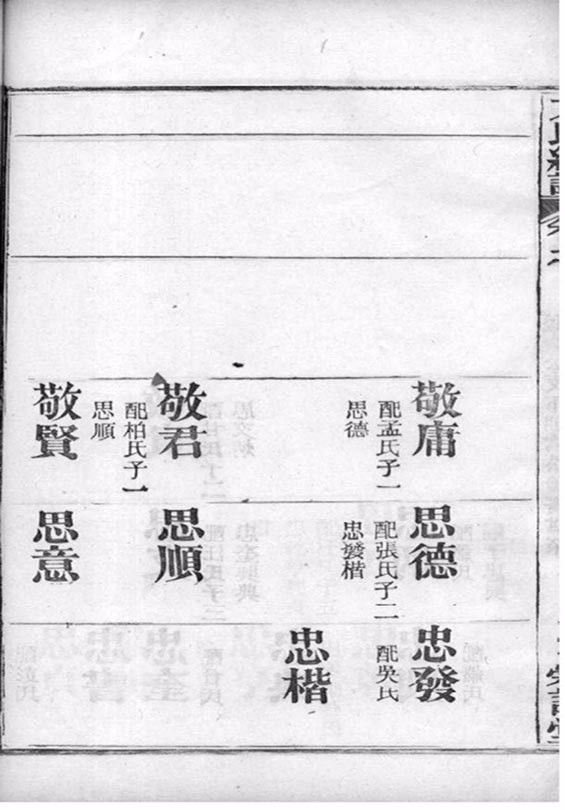 敬庸
配孟氏子一
思德
敬君
配柏氏子一
思順
敬賢
思德
配張氏子二
忠發楷
思順
思意
忠發
配吳氏
忠楷